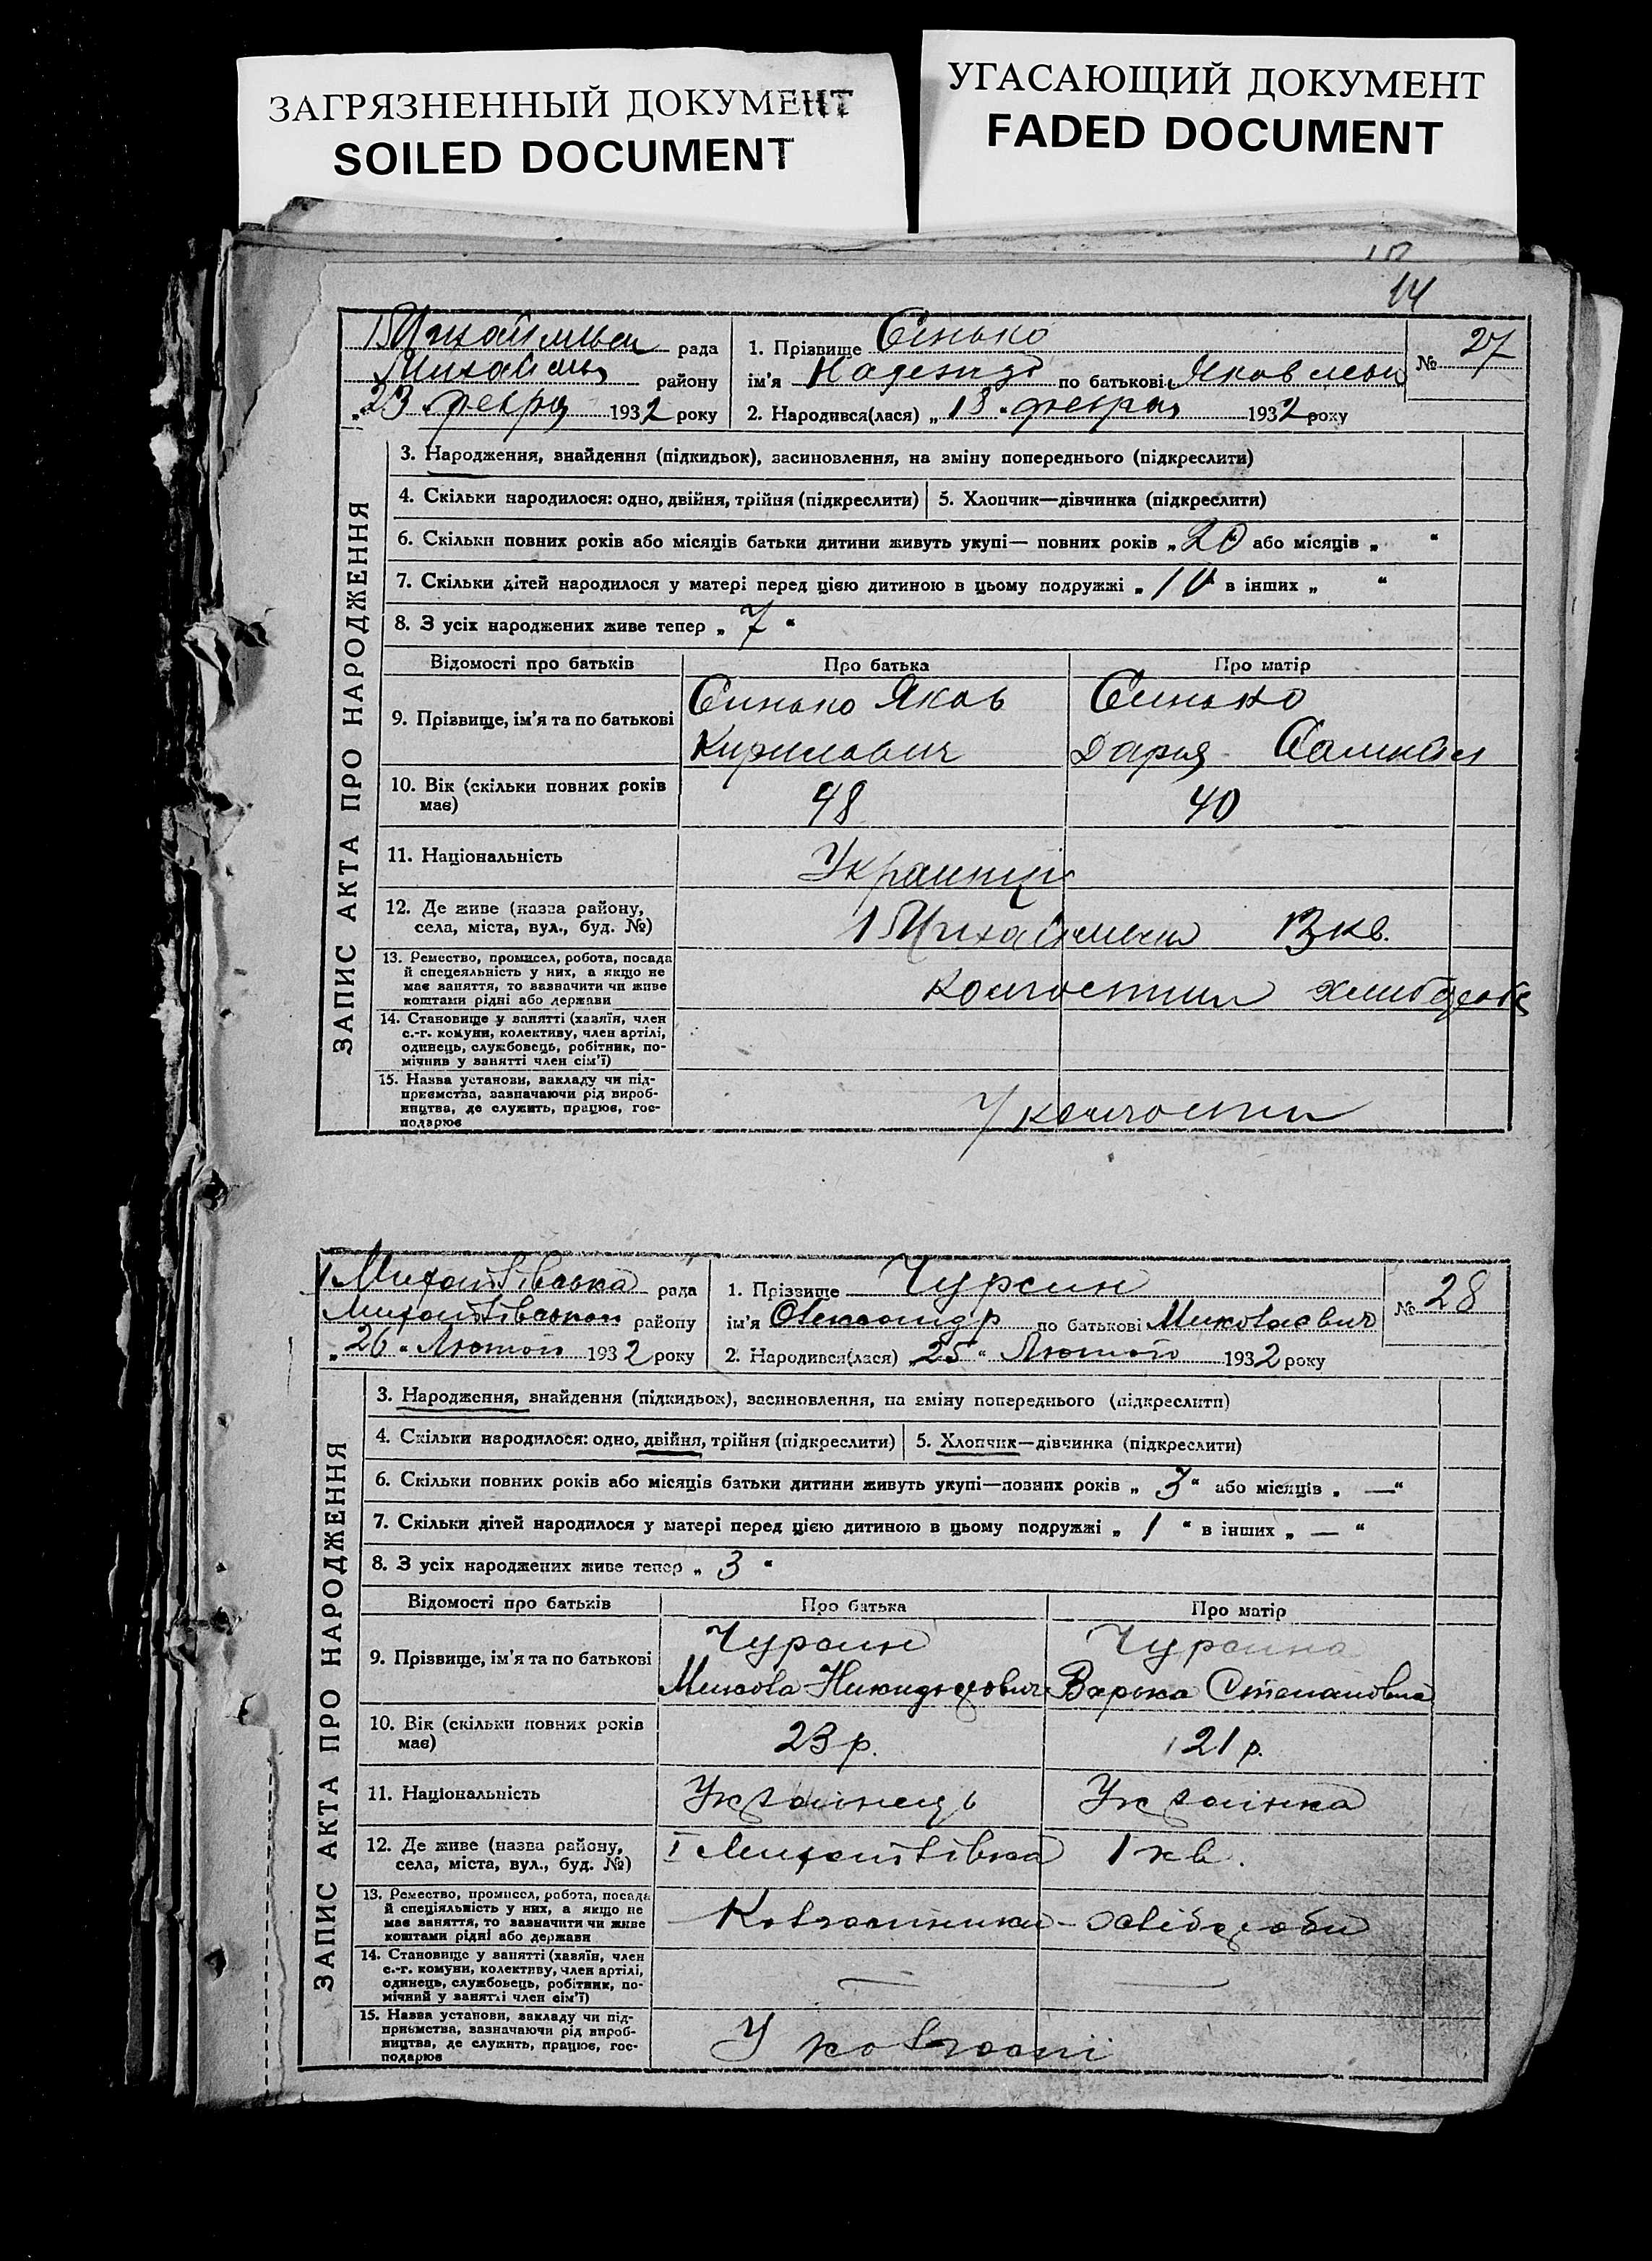 ЗАГРЯЗНЕННЫЙ ДОКУМЕНТ
SOILED DOCUMENT
УГАСАЮЩИЙ ДОКУМЕНТ
FADED DOCUMENT
14
рада
району
„23 февра 1932 року
1. Прізвище Сінько
ім'я Надежда по батькові Яковлевна
2. Народився(лася) „18 февраля 1932 року
№ 27
ЗАПИС АКТА ПРО НАРОДЖЕННЯ
3. Народження, знайдення (підкидьок), засиновлення, на зміну попереднього (підкреслити)
4. Скільки народилося: одно, двійня, трійня (підкреслити) 5. Хлопчик—дівчинка (підкреслити)
6. Скільки повних років або місяців батьки дитини живуть укупі— повних років „20 або місяців „ “
7. Скільки дітей народилося у матері перед цією дитиною в цьому подружжі „10 в інших „ “
8. З усіх народжених живе тепер „7“
Відомості про батьків Про батька Про матір
9. Прізвище, ім'я та по батькові
Синько Яков
Кирилович
Синько
Дарья
10. Вік (скільки повних років має)
48 40
11. Національність
Украинци
12. Де живе (назва району, села, міста, вул., буд. №)
13 кв.
13. Ремество, промисел, робота, посада
й спецеяльність у них, а якщо не
має заняття, то зазначити чи живе
коштами рідні або держави
14. Становище у занятті (хазяїн, член
с.-г. комуни, колективу, член артілі,
одинець, службовець, робітник, по-
мічнив у занятті член сім'ї)
15. Назва установи, закладу чи під-
приємства, зазначаючи рід вироб-
ництва, де служить, працює, гос-
подарює
У
I Михайлівська рада
Михайлівського району
„26“ Лютого 1932 року
1. Прізвище Чурсин
ім'я Олександр по батькові Миколаєвич
2. Народився(лася) „25“ Лютого 1932 року
№ 28
ЗАПИС АКТА ПРО НАРОДЖЕННЯ
3. Народження, знайдення (підкидьок), засиновлення, на зміну попереднього (підкреслити)
4. Скільки народилося: одно, двійня, трійня (підкреслити) 5. Хлопчик—дівчинка (підкреслити)
6. Скільки повних років або місяців батьки дитини живуть укупі—повних років „3“ або місяців „—“
7. Скільки дітей народилося у матері перед цією дитиною в цьому подружжі „1“ в інших „—“
8. З усіх народжених живе тепер „3“
Відомості про батьків Про батька Про матір
9. Прізвище, ім'я та по батькові
Чурсин
Микола
Чурсина
Варька Степановна
10. Вік (скільки повних років має)
23 р. 21 р.
11. Національність
Українець Українка
12. Де живе (назва району, села, міста, вул., буд. №)
I Михайлівка 1 кв.
13. Ремество, промисел, робота, посада
й спеціяльність у них, а якщо не
має заняття, то зазначити чи живе
коштами рідні або держави
Колгоспники - хлібороби
14. Становище у занятті (хазяїн, член
с.-г. комуни, колективу, член артілі,
одинець, службовець, робітник, по-
мічний у занятті член сім'ї)
— —
15. Назва установи, закладу чи під-
приємства, зазначаючи рід вироб-
ництва, де служить, працює, гос-
подарює
У колгоспі